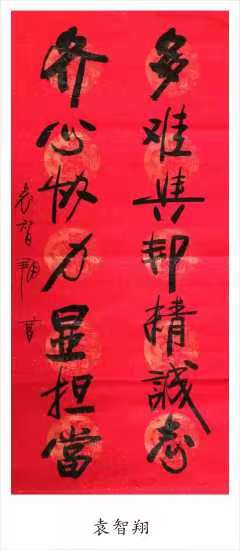 多难兴邦精誠志
齐心协力显担當
袁智翔书
袁智翔